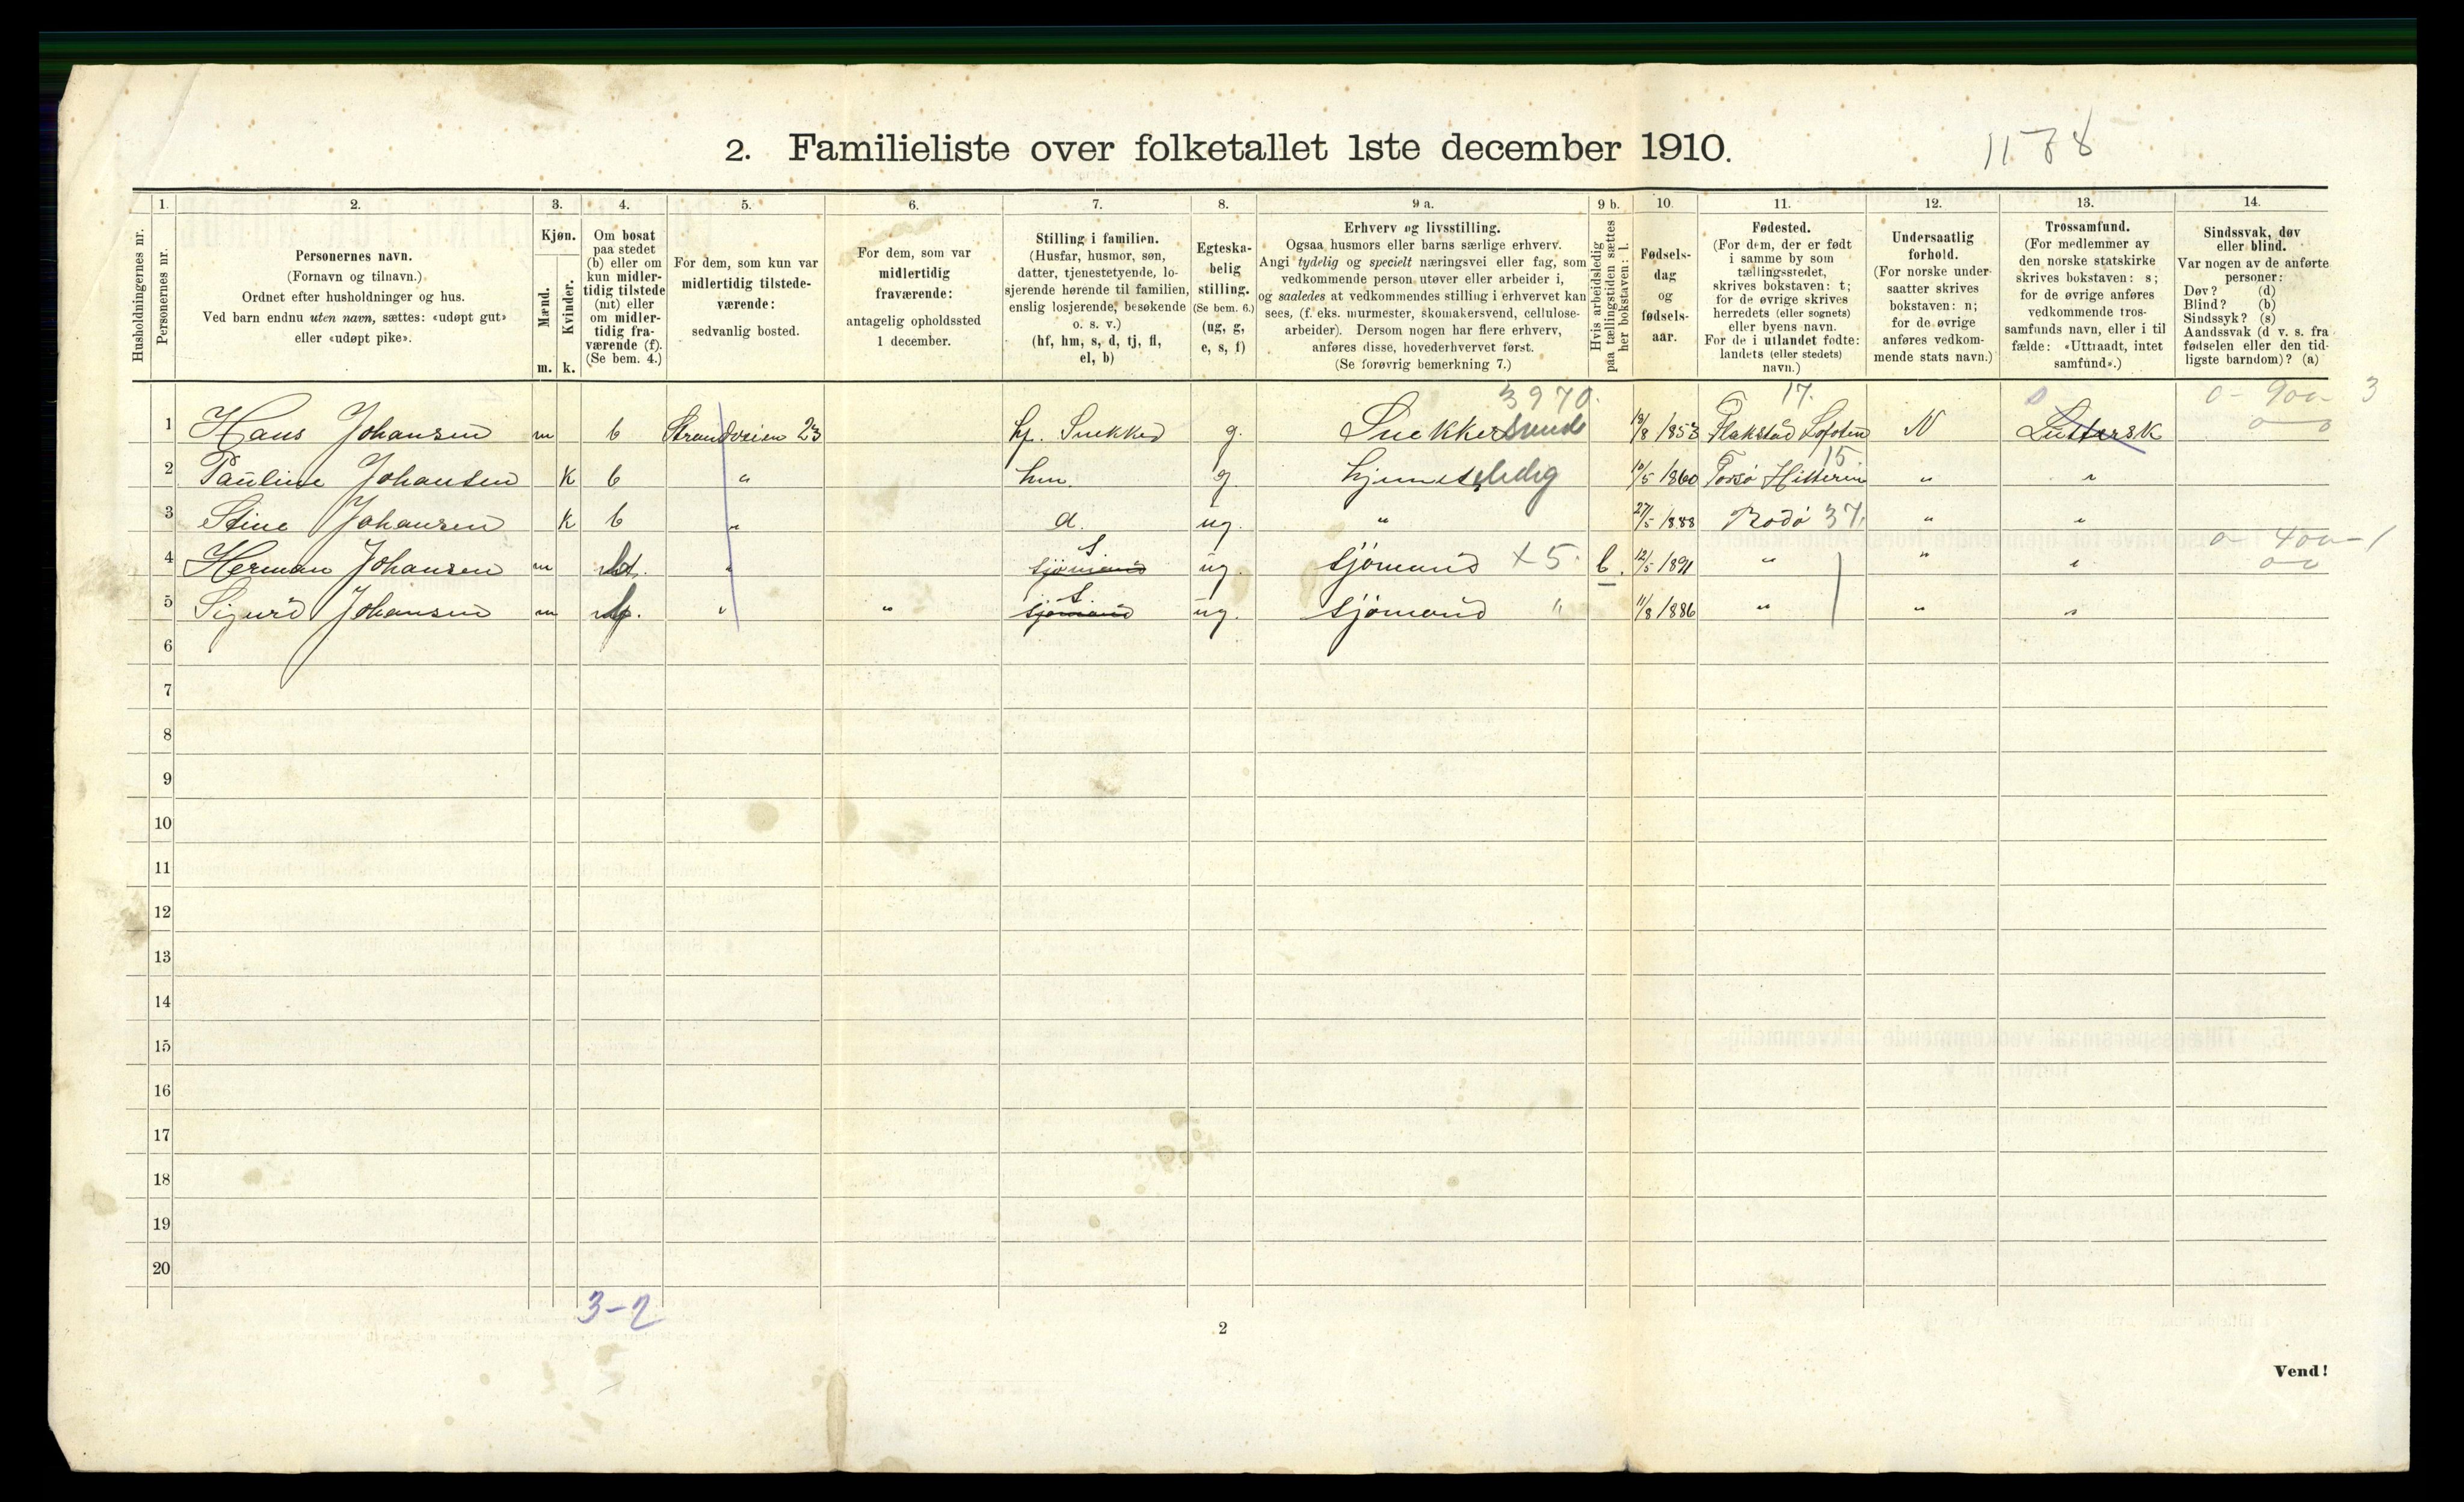 2. Familieliste over folketallet 1ste december 1910.
1178
Husholdningernes nr.
1. Personernes nr.
2. Personernes navn. (Fornavn og tilnavn.) Ordnet efter husholdninger og hus. Ved barn endnu uten navn, sættes: «udøpt gut» eller «udøpt pike».
3. Kjøn. Mænd. m. Kvinder. k.
4. Om bosat paa stedet (b) eller om kun midlertidig tilstede (mt) eller om midlertidig fraværende (f). (Se bem. 4.)
5. For dem, som kun var midlertidig tilstedeværende: sedvanlig bosted.
6. For dem, som var midlertidig fraværende: antagelig opholdssted 1 december.
7. Stilling i familien. (Husfar, husmor, søn, datter, tjenestetyende, losjerende hørende til familien, enslig losjerende, besøkende o. s. v.) (hf, hm, s, d, tj, fl, el, b)
8. Egteskabelig stilling. (Se bem. 6.) (ug, g, e, s, f)
9 a. Erhverv og livsstilling. Ogsaa husmors eller barns særlige erhverv. Angi tydelig og specielt næringsvei eller fag, som vedkommende person utøver eller arbeider i, og saaledes at vedkommendes stilling i erhvervet kan sees, (f. eks. murmester, skomakersvend, cellulosearbeider). Dersom nogen har flere erhverv, anføres disse, hovederhvervet først. (Se forøvrig bemerkning 7.)
9 b. Hvis arbeidsledig paa tællingstiden sættes her bokstaven: l.
10. Fødselsdag og fødselsaar.
11. Fødested. (For dem, der er født i samme by som tællingsstedet, skrives bokstaven: t; for de øvrige skrives herredets (eller sognets) eller byens navn. For de i utlandet fødte: landets (eller stedets) navn.)
12. Undersaatlig forhold. (For norske undersaatter skrives bokstaven: n; for de øvrige anføres vedkommende stats navn.)
13. Trossamfund. (For medlemmer av den norske statskirke skrives bokstaven: s; for de øvrige anføres vedkommende trossamfunds navn, eller i tilfælde: «Uttraadt, intet samfund».)
14. Sindssvak, døv eller blind. Var nogen av de anførte personer: Døv? (d) Blind? (b) Sindssyk? (s) Aandssvak (d. v. s. fra fødselen eller den tidligste barndom)? (a)
3970. 17. 0- 900- 3
1 Hans Johansen m b Strandveien 23 hf. Snekker g. Snekkersvend 13/8 1853 Flakstad Lofoten N Luttersk
15
2 Pauline Johansen K b " hm g. hjemst ledig 10/5 1860 " "
3 Stine Johansen K b " d. ug. " 27/5 1888 Rodø 37. " "
0- 400-1
4 Herman Johansen m " sjømand S ug. sjømand X 5. l. 12/5 1891 " " "
5 Sigurd Johansen m " " sjømand S. ug. sjømand " 11/8 1886 " " "
6
7
8
9
10
11
12
13
14
15
16
17
18
19
20
3-2
2
Vend!